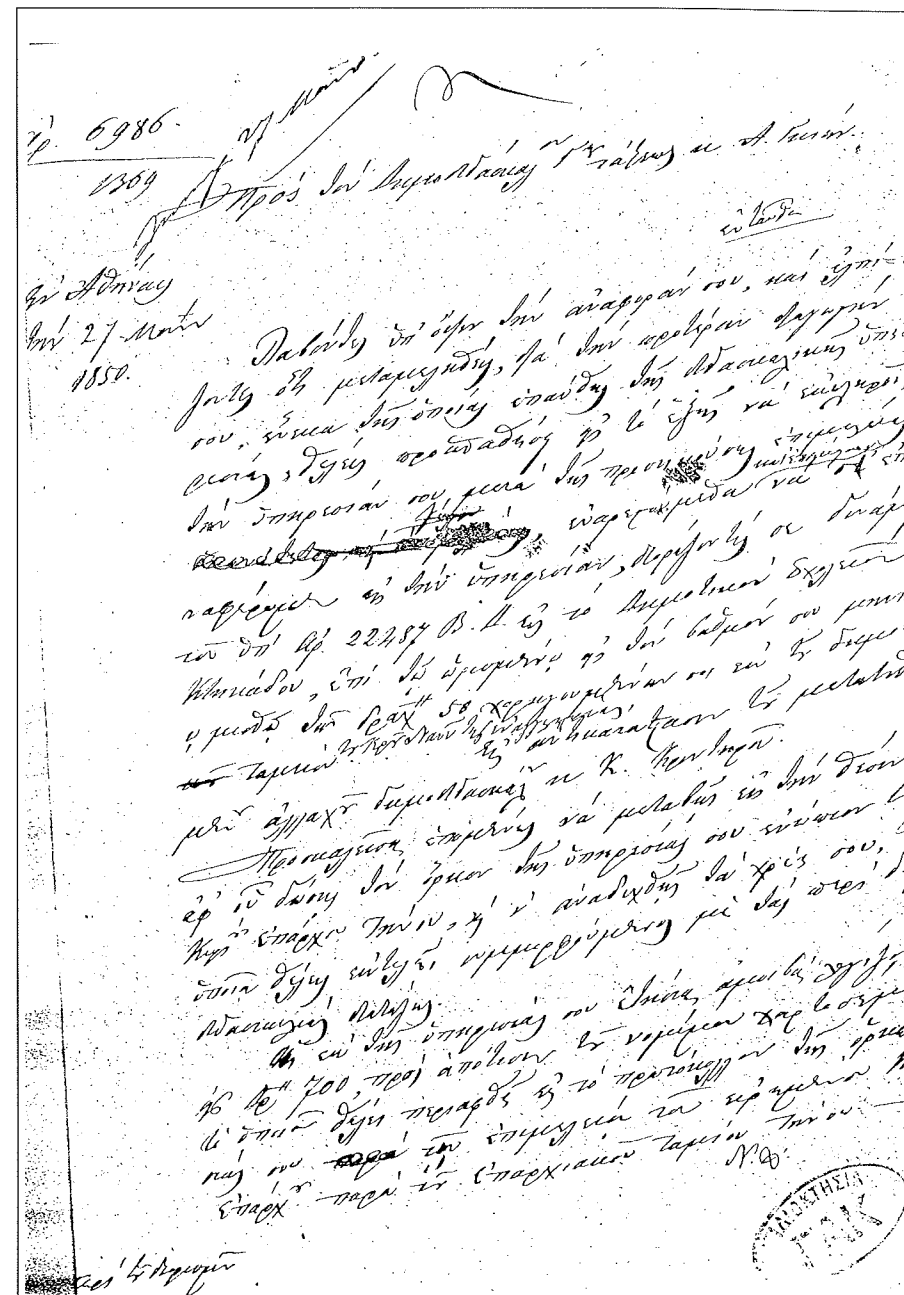 ἀρ. 6986.
1369
27 Μαΐου
Πρὸς τὸν δημοδιδάσκαλον Γ΄ τάξεως κ. Α.
ἐνταῦθα
Ἐν Ἀθήναις
τὴν 27 Μαΐου
1850.
Λαβόντες ὑπ' ὄψιν τὴν ἀναφοράν σου, καὶ ἐλπί-
ζοντες ὅτι μεταμεληθεὶς, διὰ τὴν προτέραν διαγωγήν
σου, ἕνεκα τῆς ὁποίας ἐπαύθης τῆς διδασκαλικῆς ὑπη
ρεσίας, θέλεις προσπαθήσει εἰς τὸ ἑξῆς νὰ ἐκπληροῖς
τὴν ὑπηρεσίαν σου μετὰ τῆς προσηκούσης ἐπιμελείας
εὐαρεστούμεθα νὰ σὲ ἐπα
ναφέρωμεν εἰς τὴν ὑπηρεσίαν, διορίζοντές σε δυνάμει
τοῦ ὑπ' ἀρ. 22487 Β. Δ. εἰς τὸ δημοτικὸν σχολεῖον
Κτικάδου, ἐπὶ τῷ ὡρισμένῳ εἰς τὸν βαθμόν σου μηνιαί
ῳ μισθῷ τῶν δραχ. 50 χορηγουμένων σοι ἐκ τοῦ δημοσί
ταμείου
εἰς ἀντικατάστασιν τοῦ μετατεθ
μένου ἀλλαχοῦ δημοδιδασκάλου κ. Κ.
Προσκαλεῖσαι ἑπομένως νὰ μεταβῇς εἰς τὴν θέσιν
ἀφ' οὗ δώσῃς τὸν ὅρκον τῆς ὑπηρεσίας σου ἐνώπιον τοῦ
Κυρίου ἐπάρχου Τήνου, καὶ ν' ἀναδεχθῇς τὰ χρέη σου, τὰ
ὁποῖα θέλεις ἐκτελεῖ, συμμορφούμενος μὲ τὰς περὶ δ
διδασκαλίας διατάξεις.
ἐκ τῆς ὑπηρεσίας σου ἐτήσιος ἀμοιβὴ λογίζεται
εἰς δρ. 700, πρὸς ἀπότισιν τοῦ νομίμου χαρτοσήμου
τὸ ὁποῖον θέλει περιαφθῆ εἰς τὸ πρωτόκολλον τῆς ὁρκω
σίας σου τῇ ἐπιμελείᾳ τοῦ εἰρημένου Κ
ἐπάρχου παρὰ τοῦ ἐπαρχιακοῦ ταμείου Τήνου
ΙΔΙΟΚΤΗΣΙΑ
ΓΑΚ